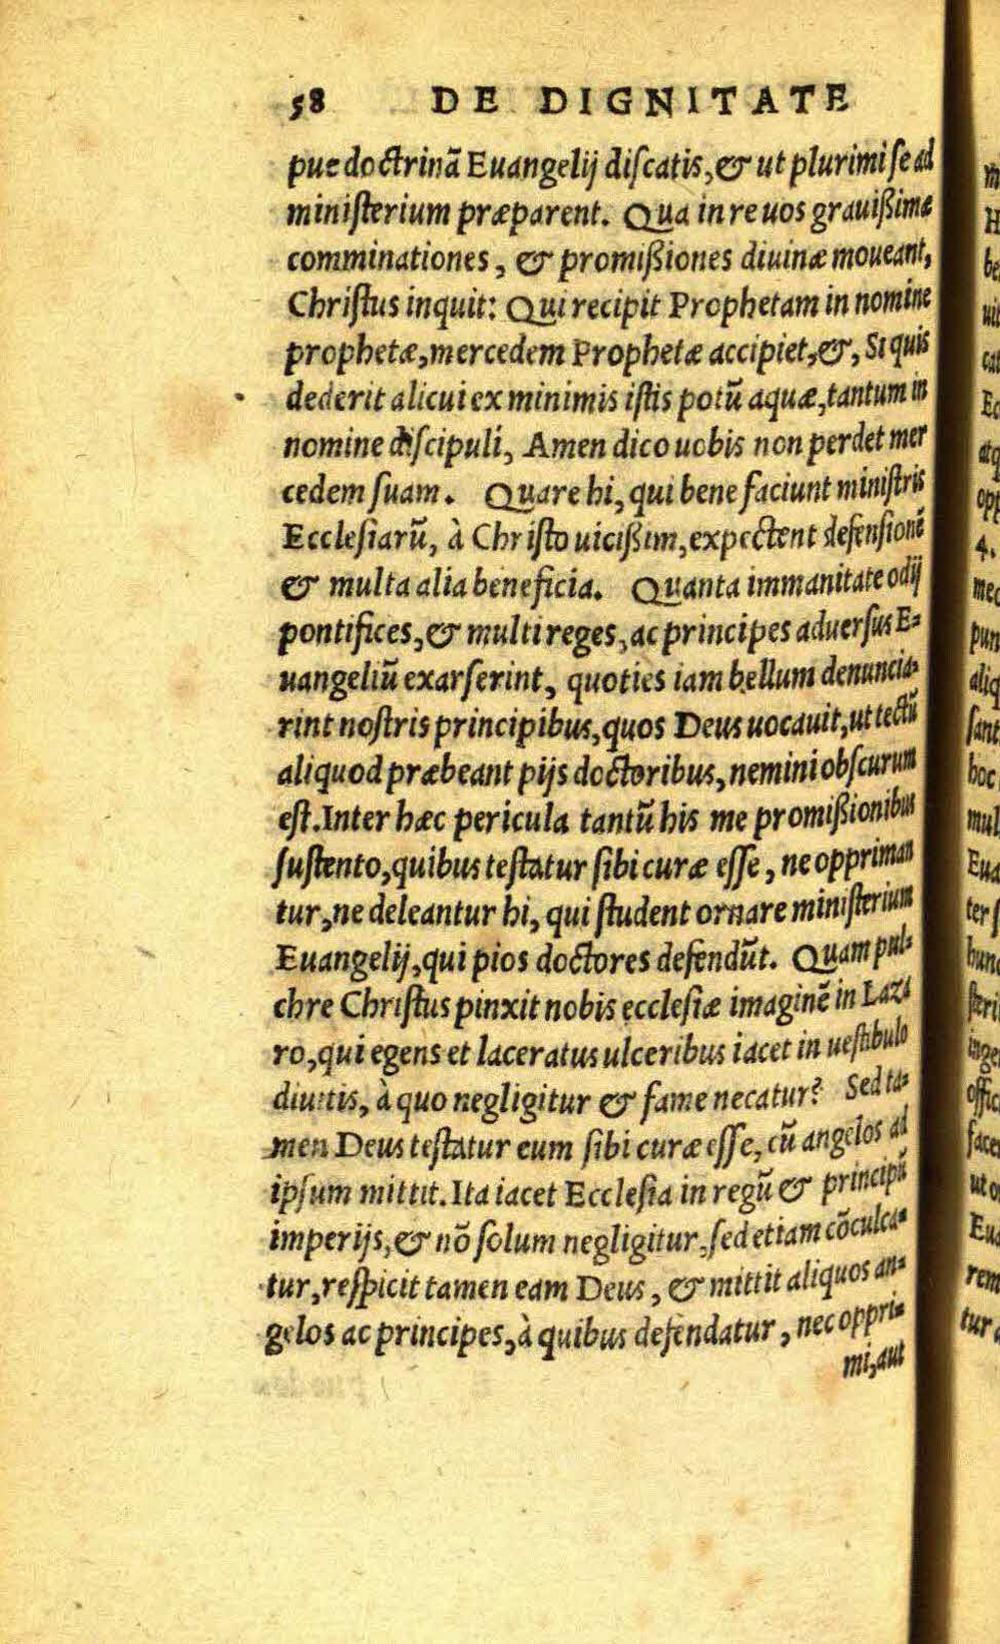 58 DE DIGNITATE
pue doctrinã Euangelij discatis, & ut plurimi se ad
ministerium præparent. Qua in re uos grauißimæ
comminationes, & promißiones diuinæ moueant,
Christus inquit: Qui recipit Prophetam in nomine
prophetæ, mercedem Prophetæ accipiet, &, Si quis
dederit alicui ex minimis istis potũ aquæ, tantum in
nomine discipuli, Amen dico uobis non perdet mer
cedem suam. Quare hi, qui bene faciunt ministris
Ecclesiarũ, à Christo uicißim, expectent defensionẽ
& multa alia beneficia. Quanta immanitate odij
pontifices, & multi reges, ac principes aduersus E=
uangeliũ exarserint, quoties iam bellum denuncia=
rint nostris principibus, quos Deus uocauit, ut tectũ
aliquod præbeant pijs doctoribus, nemini obscurum
est. Inter hæc pericula tantũ his me promißionibus
sustento, quibus testatur sibi curæ esse, ne oppriman
tur, ne deleantur hi, qui student ornare ministerium
Euangelij, qui pios doctores defendũt. Quam pul=
chre Christus pinxit nobis ecclesiæ imaginẽ in Laza
ro, qui egens et laceratus ulceribus iacet in uestibulo
diuitis, à quo negligitur & fame necatur? Sed ta=
men Deus testatur eum sibi curæ esse, cũ angelos ad
ipsum mittit. Ita iacet Ecclesia in regũ & principũ
imperijs, & nõ solum negligitur, sed etiam cõculca=
tur, respicit tamen eam Deus, & mittit aliquos an=
gelos ac principes, à quibus defendatur, nec oppri=
mi, aut